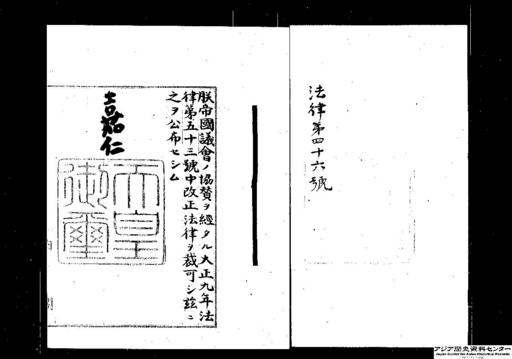 法律第四十六號
朕帝國議會ノ協贊ヲ經タル大正九年法
律第五十三號中改正法律ヲ裁可シ茲ニ
之ヲ公布セシム
嘉仁
天皇
御璽
アジア歴史資料センター
Japan Center for Asian Historical Records